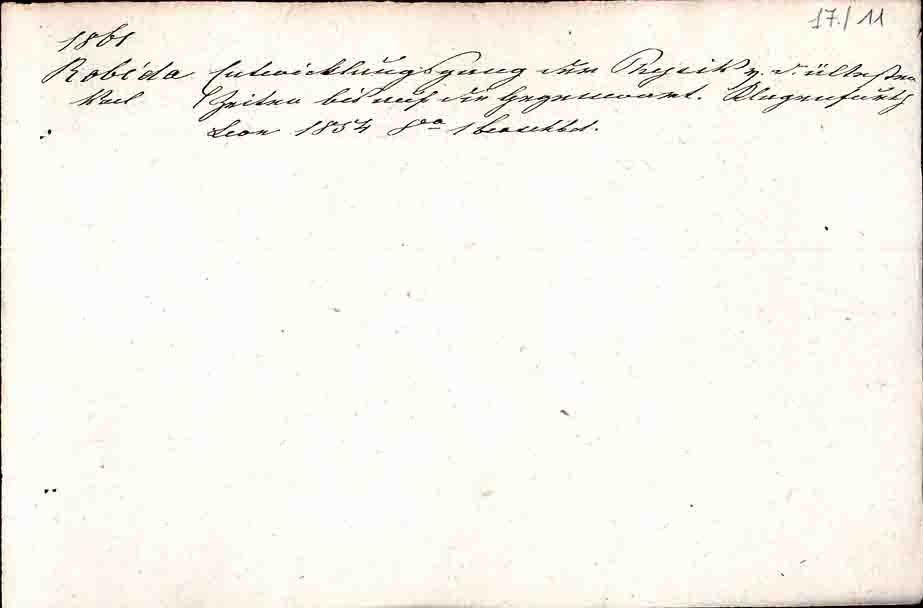 17./11
1861
Robida Entwicklungsgang der Physik v. d. ältesten
Karl Zeiten bis auf die Gegenwart. Klagenfurth
Leon 1857 8vo 1 broschbd.